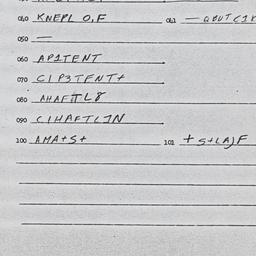 040 KNEPL O,F 041 — QOUTC1
050 —
060 AP1TENT
070 CIP3TFNT+
080 AHAFITL8
090 CIHAFTLJN
100 AMA+S+ 101 +S+LAJF